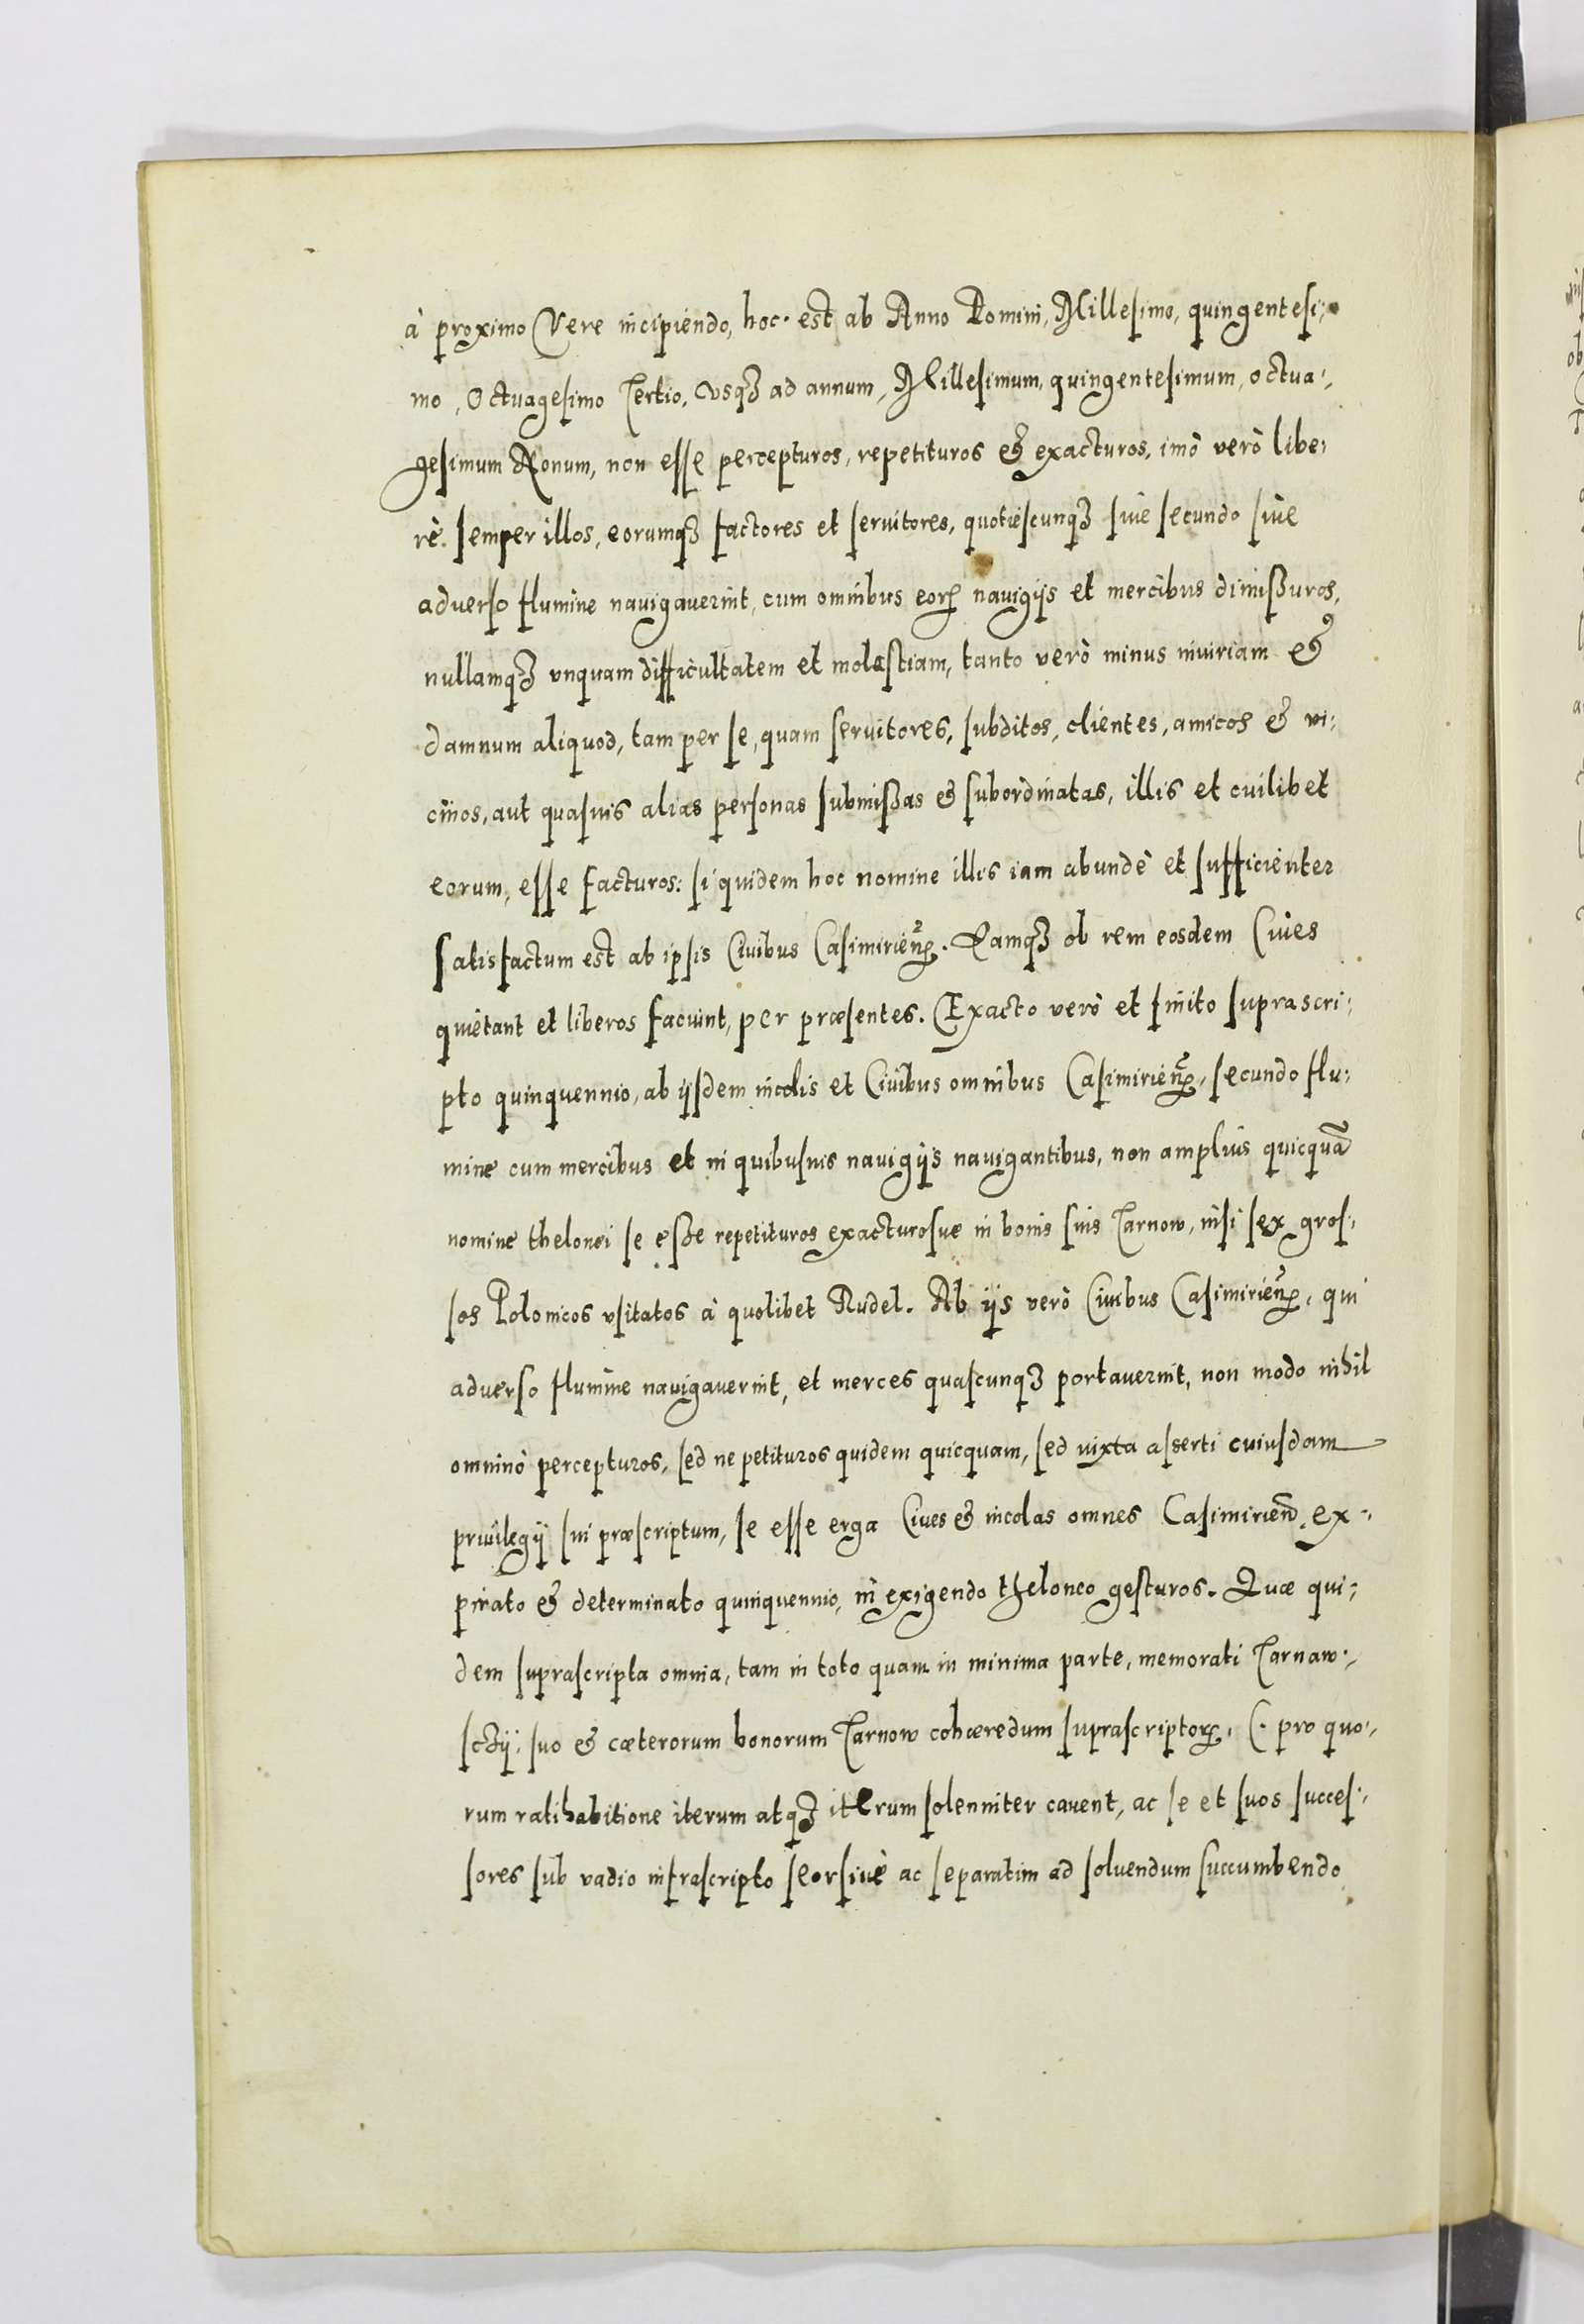 à proximo Vere incipiendo, hoc est ab Anno Domini, Millesimo, quingentesi,
mo, Octuagesimo Tertio, vsqȝ ad annum, Millesimum, quingentesimum, octua,
gesimum Nonum, non esse percepturos, repetituros & exacturos, imò verò libe,
rè semper illos, eorumqȝ factores et seruitores, quotiescunqȝ siue secundo siue
aduerso flumine nauigauerint, cum omnibus eorꝝ nauigijs et mercibus dimißuros,
nullamqȝ vnquam difficultatem et molestiam, tanto verò minus iniuriam &
damnum aliquod, tam per se, quam seruitores, subditos, clientes, amicos & vi,
cinos, aut quasuis alias personas submißas & subordinatas, illis et cuilibet
eorum, esse facturos: siquidem hoc nomine illis iam abundè et sufficienter
satisfactum est ab ipsis Ciuibus Casimirieñꝝ. Quamqȝ ob rem eosdem Ciues
quietant et liberos faciunt, per præsentes. Exacto verò et finito suprascri,
pto quinquennio, ab ijsdem incolis et Ciuibus omnibus Casimirieñꝝ, secundo flu,
mine cum mercibus et in quibusuis nauigijs nauigantibus, non amplius quicquã
nomine thelonei se eße repetituros exacturosue in bonis suis Tarnow, nisi sex gros,
sos Polonicos vsitatos à quolibet Rudel. Ab ijs verò Ciuibus Casimirieñꝝ, qui
aduerso flumine nauigauerint, et merces quascunqȝ portauerint, non modo nihil
omninò percepturos, sed ne petituros quidem quicquam, sed iuxta asserti cuiusdam
priuilegij sui præscriptum, se esse erga Ciues & incolas omnes Casimirien. ex,
pirato & determinato quinquennio, in exigendo theloneo gesturos. Quæ qui,
dem suprascripta omnia, tam in toto quam in minima parte, memorati Tarnaw,
scȝij, suo & cæterorum bonorum Tarnow cohæredum suprascriptorꝝ, (. pro quo,
rum ratihabitione iterum atqȝ iterum solenniter cauent, ac se et suos succes,
sores sub vadio infrascripto seorsiuè ac separatim ad soluendum succumbendo